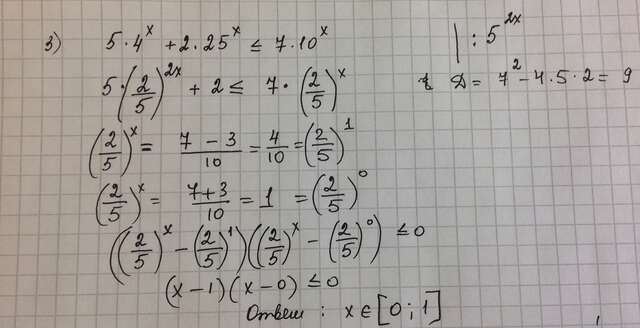 3) 5·4^x + 2·25^x ≤ 7·10^x | : 5^{2x}
5·(2/5)^{2x} + 2 ≤ 7·(2/5)^x Д = 7^2 - 4·5·2 = 9
(2/5)^x = (7 - 3)/10 = 4/10 = (2/5)^1
(2/5)^x = (7+3)/10 = 1 = (2/5)^0
((2/5)^x - (2/5)^1)((2/5)^x - (2/5)^0) ≤ 0
(x-1)(x-0) ≤ 0
Ответ: x ∈ [0;1]